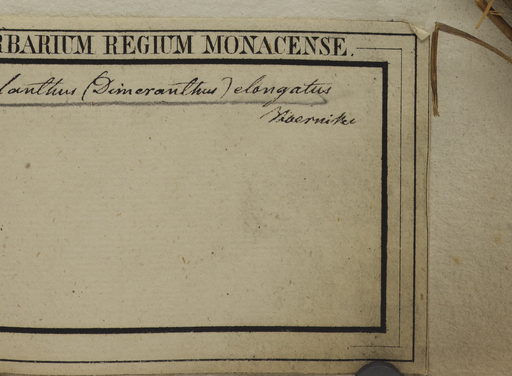 RBARIUM REGIUM MONACENSE.
lanthus (Dimeranthus) elongatus
Koernike